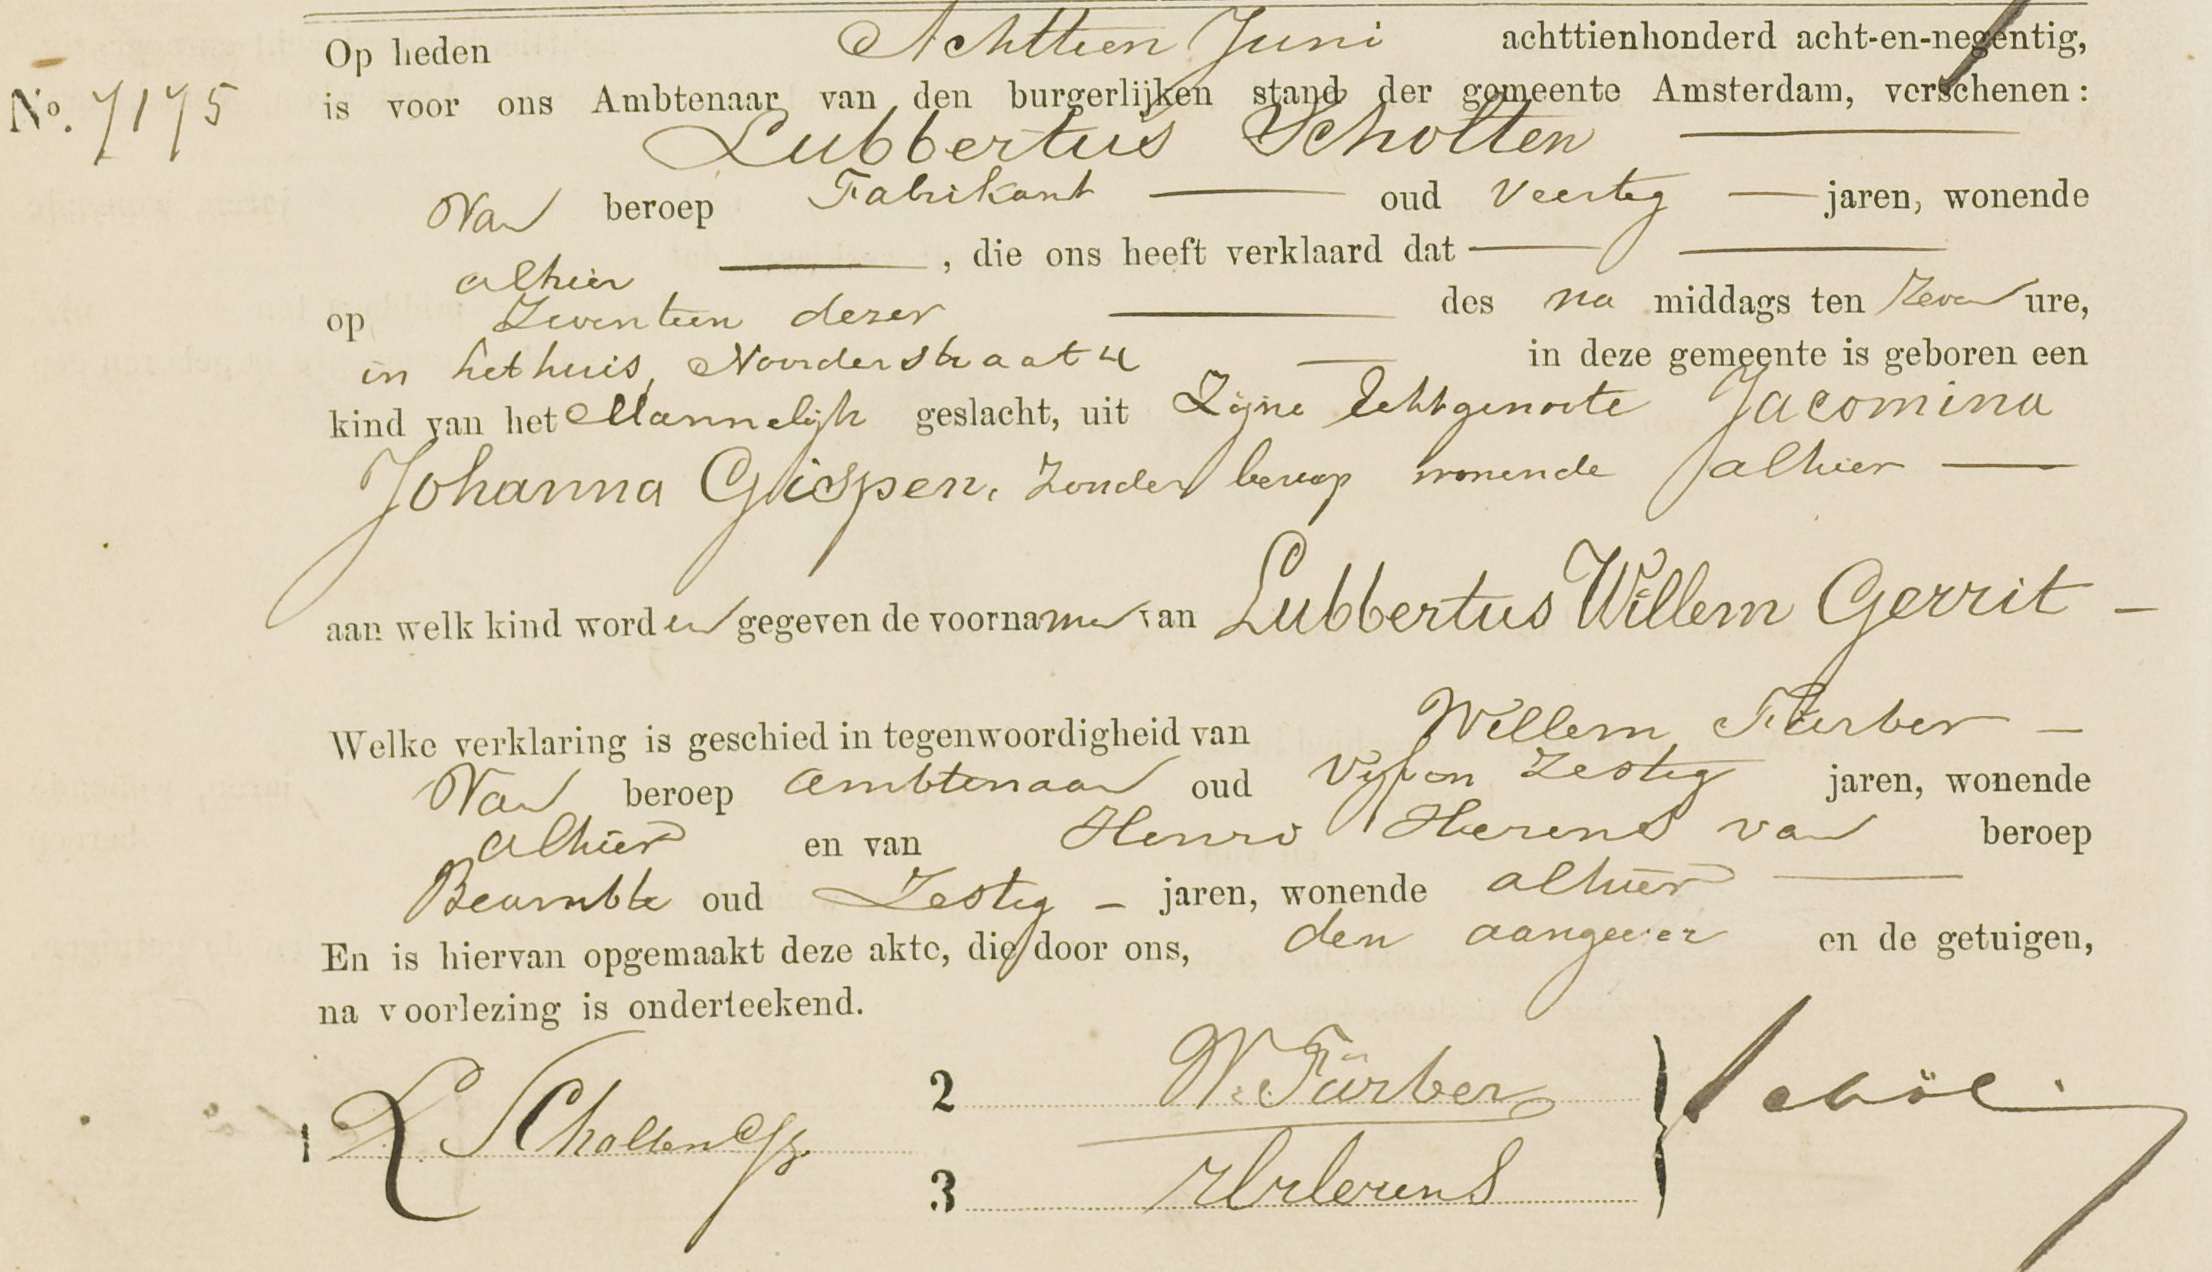 Op heden Achttien Juni achttienhonderd acht-en-negentig,
No. 7175 is voor ons Ambtenaar van den burgerlijken stand der gemeente Amsterdam, verschenen:
Lubbertus Scholten
Van beroep Fabrikant oud veertig jaren, wonende
alhier , die ons heeft verklaard dat
op Zeventien dezer des na middags ten Zeven ure,
in het huis, Noorderstraat 4 in deze gemeente is geboren een
kind van het Mannelijk geslacht, uit Zijne Echtgenoote Jacomina
Johanna Gispen, Zonder beroep wonende alhier
aan welk kind worden gegeven de voornamen van Lubbertus Willem Gerrit
Welke verklaring is geschied in tegenwoordigheid van Willem Färber
Van beroep ambtenaar oud Vijf en Zestig jaren, wonende
alhier en van Henri Herens van beroep
Beambte oud Zestig jaren, wonende alhier
En is hiervan opgemaakt deze akte, die door ons, den aangever en de getuigen,
na voorlezing is onderteekend.
1 L Scholten
2 W. Färber
3 HHerens